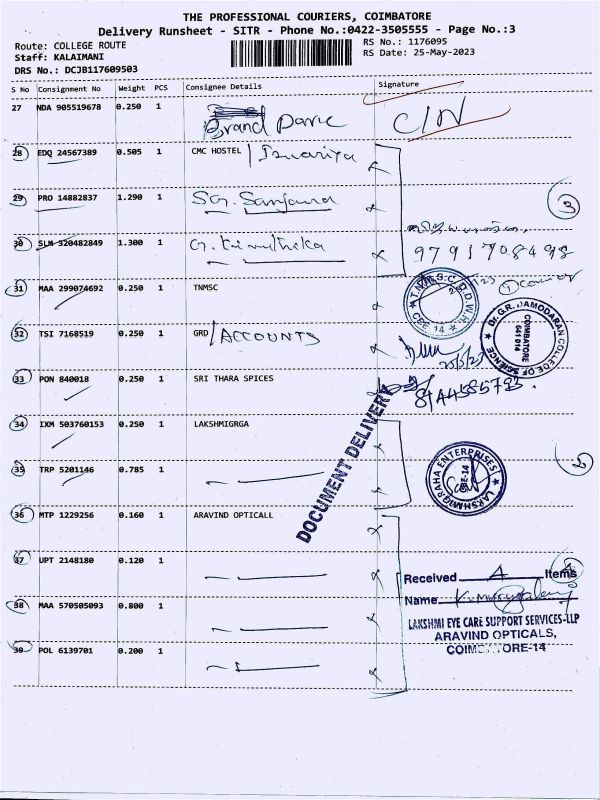 THE PROFESSIONAL COURIERS, COIMBATORE
Delivery Runsheet - SITR - Phone No.:0422-3505555 - Page No.:3
Route: COLLEGE ROUTE
RS No.: 1176095
Staff: KALAIMANI
RS Date: 25-May-2023
DRS No.: DCJB117609503
S No Consignment No Weight PCS Consignee Details Signature
27 NDA 905519678 0.250 1
28 EDQ 24567389 0.505 1 CMC HOSTEL
29 PRO 14882837 1.290 1
3
30 SLM 320482849 1.300 1
9791708498
31 MAA 299074692 0.250 1 TNMSC
CBE 14
Dr. G.R. DAMODARAN COLLEGE OF SCIENCE
COIMBATORE
641 014
32 TSI 7168519 0.250 1 GRD / ACCOUNTS
33 PON 840018 0.250 1 SRI THARA SPICES
DOCUMENT DELIVERY
34 IXM 503760153 0.250 1 LAKSHMIGRGA
LAKSHMIGRAHA ENTERPRISES
CBE-14
2
35 TRP 5201146 0.785 1
36 MTP 1229256 0.160 1 ARAVIND OPTICALL
37 UPT 2148180 0.120 1
Received 4 Items
38 MAA 570505093 0.800 1
Name
LAKSHMI EYE CARE SUPPORT SERVICES-LLP
ARAVIND OPTICALS,
39 POL 6139701 0.200 1